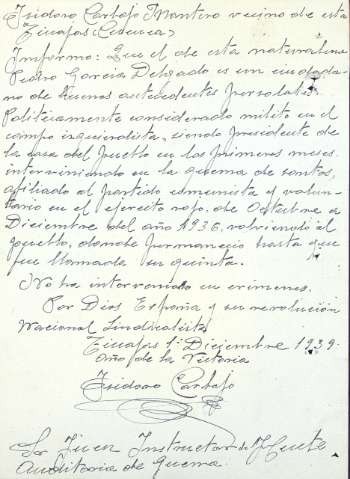 Isidoro Carbajo Montero vecino de esta
Tinajas (Cuenca)
Informo: Que el de esta naturaleza
Pedro Garcia Delgado es un ciudada-
no de buenos antecedentes personales.
Politicamente considerado milito en el
campo izquierdista, siendo presidente de
la casa del pueblo en los primeros meses.
interviniendo en la quema de santos,
afiliado al partido comunista y volun-
tario en el ejercito rojo, de Octubre a
Diciembre del año 1936, volviendo al
pueblo, donde permanecio hasta que
fue llamada su quinta.
No ha intervenido en crimenes.
Por Dios España y su revolución
Nacional Sindicalista
Tinajas 1º Diciembre 1939.
Año de la Victoria
Isidoro Carbajo
Sr Juez Instructor de
Auditoria de Guerra.